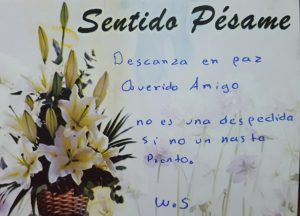 Sentido Pésame
Descanza en paz
Querido Amigo
no es una despedida
si no un hasta
Pronto.
W.S